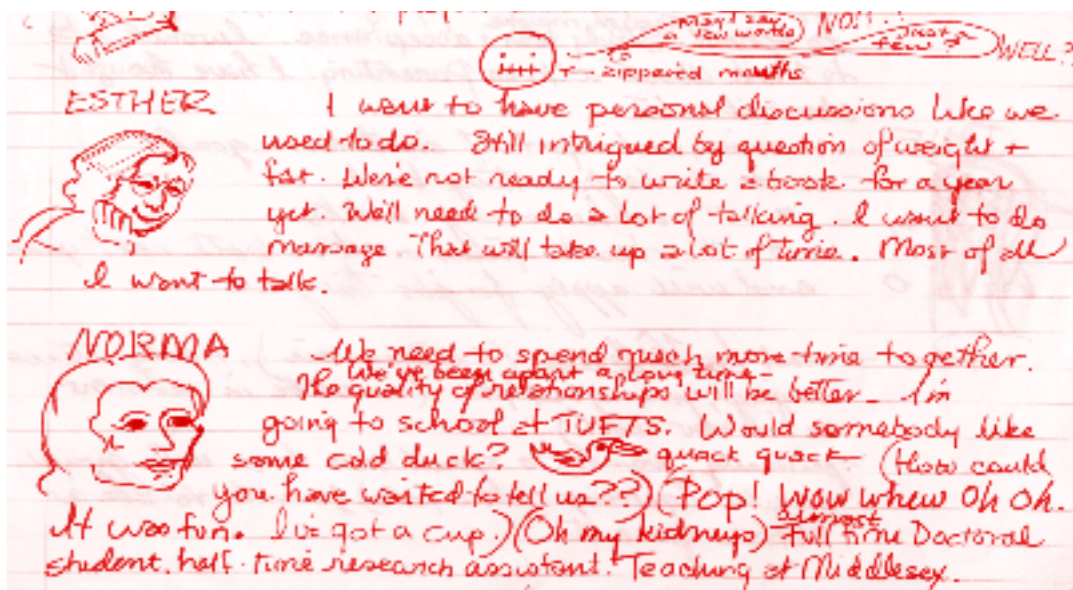 May I say
a few words
NO!!
Just a
few?
WELL??
← zippered mouths
ESTHER
I want to have personal discussions like we
used to do. Still intrigued by question of weight +
fat. We're not ready to write a book for a year
yet. We'll need to do a lot of talking. I want to do
massage. That will take up a lot of time. Most of all
I want to talk.
NORMA
We need to spend much more time together.
We've been apart a long time -
The quality of relationships will be better - I'm
going to school at TUFTS. Would somebody like
some cold duck? quack quack (How could
you have waited to tell us??) (Pop! Wow whew Oh Oh.
It was fun. I've got a cup.) (Oh my kidneys) almost full time Doctoral
student, half-time research assistant. Teaching at Middlesex.